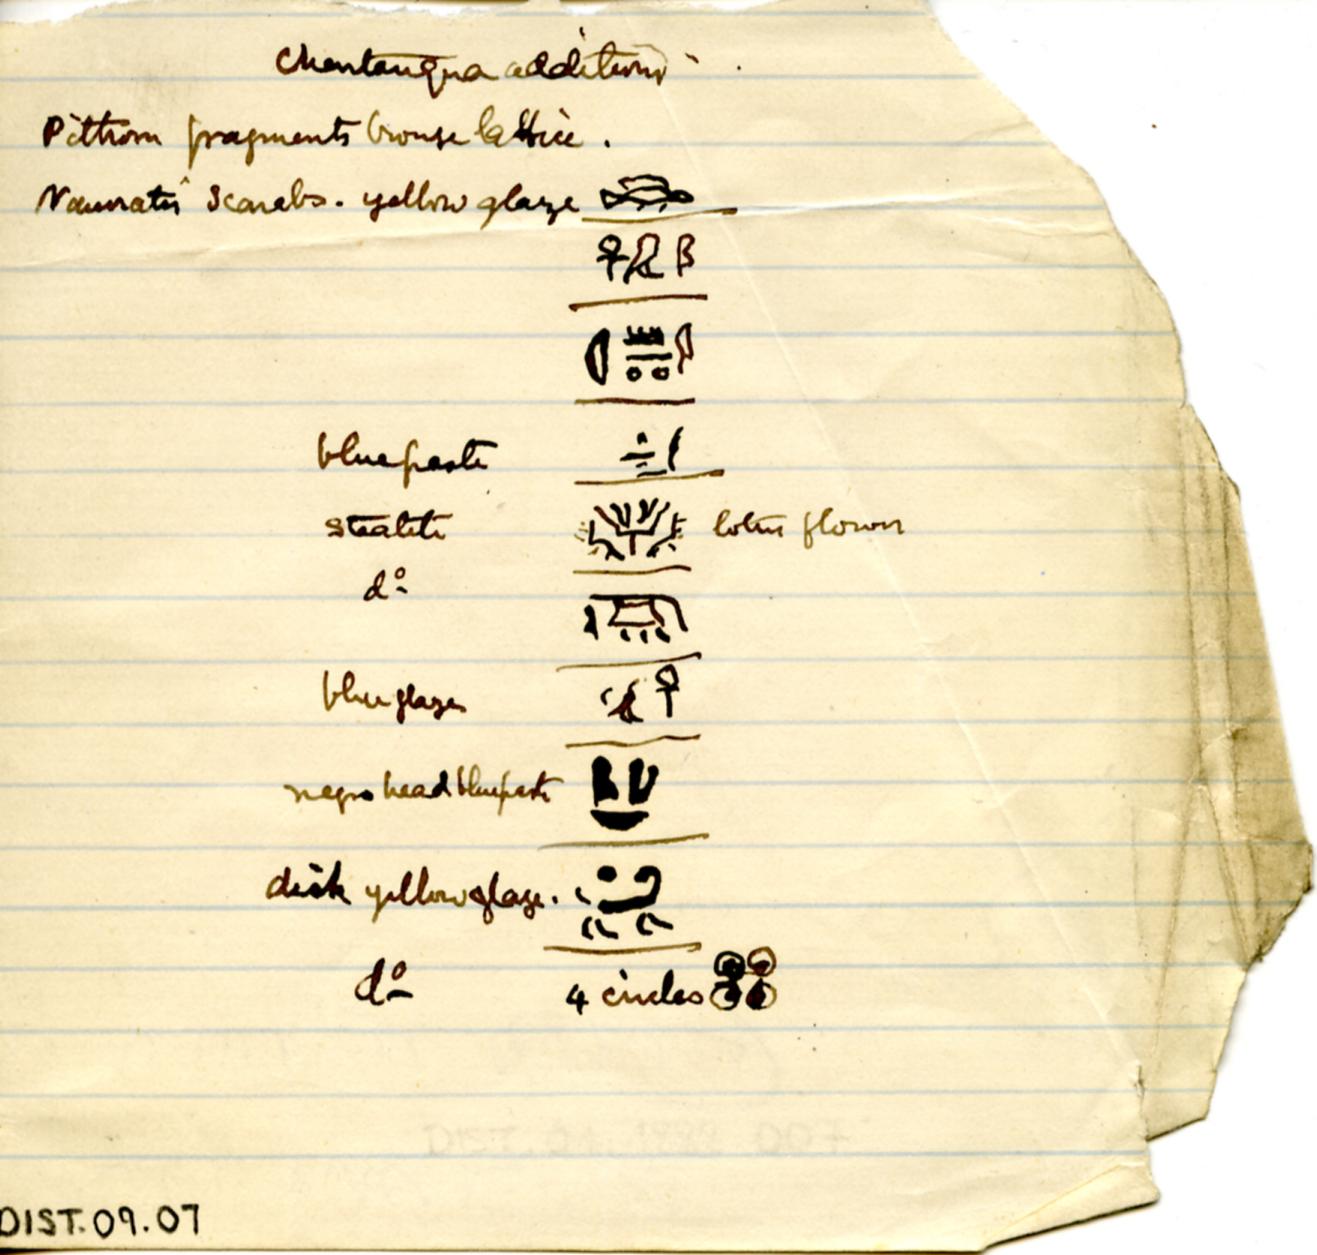 Chautauqua additions
Pithom fragments bronze lattice.
Naukratis Scarabs. yellow glaze
blue paste
steatite lotus flower
dº
blue glaze
negro head blue paste
disk yellow glaze.
dº 4 circles
DIST.09.07